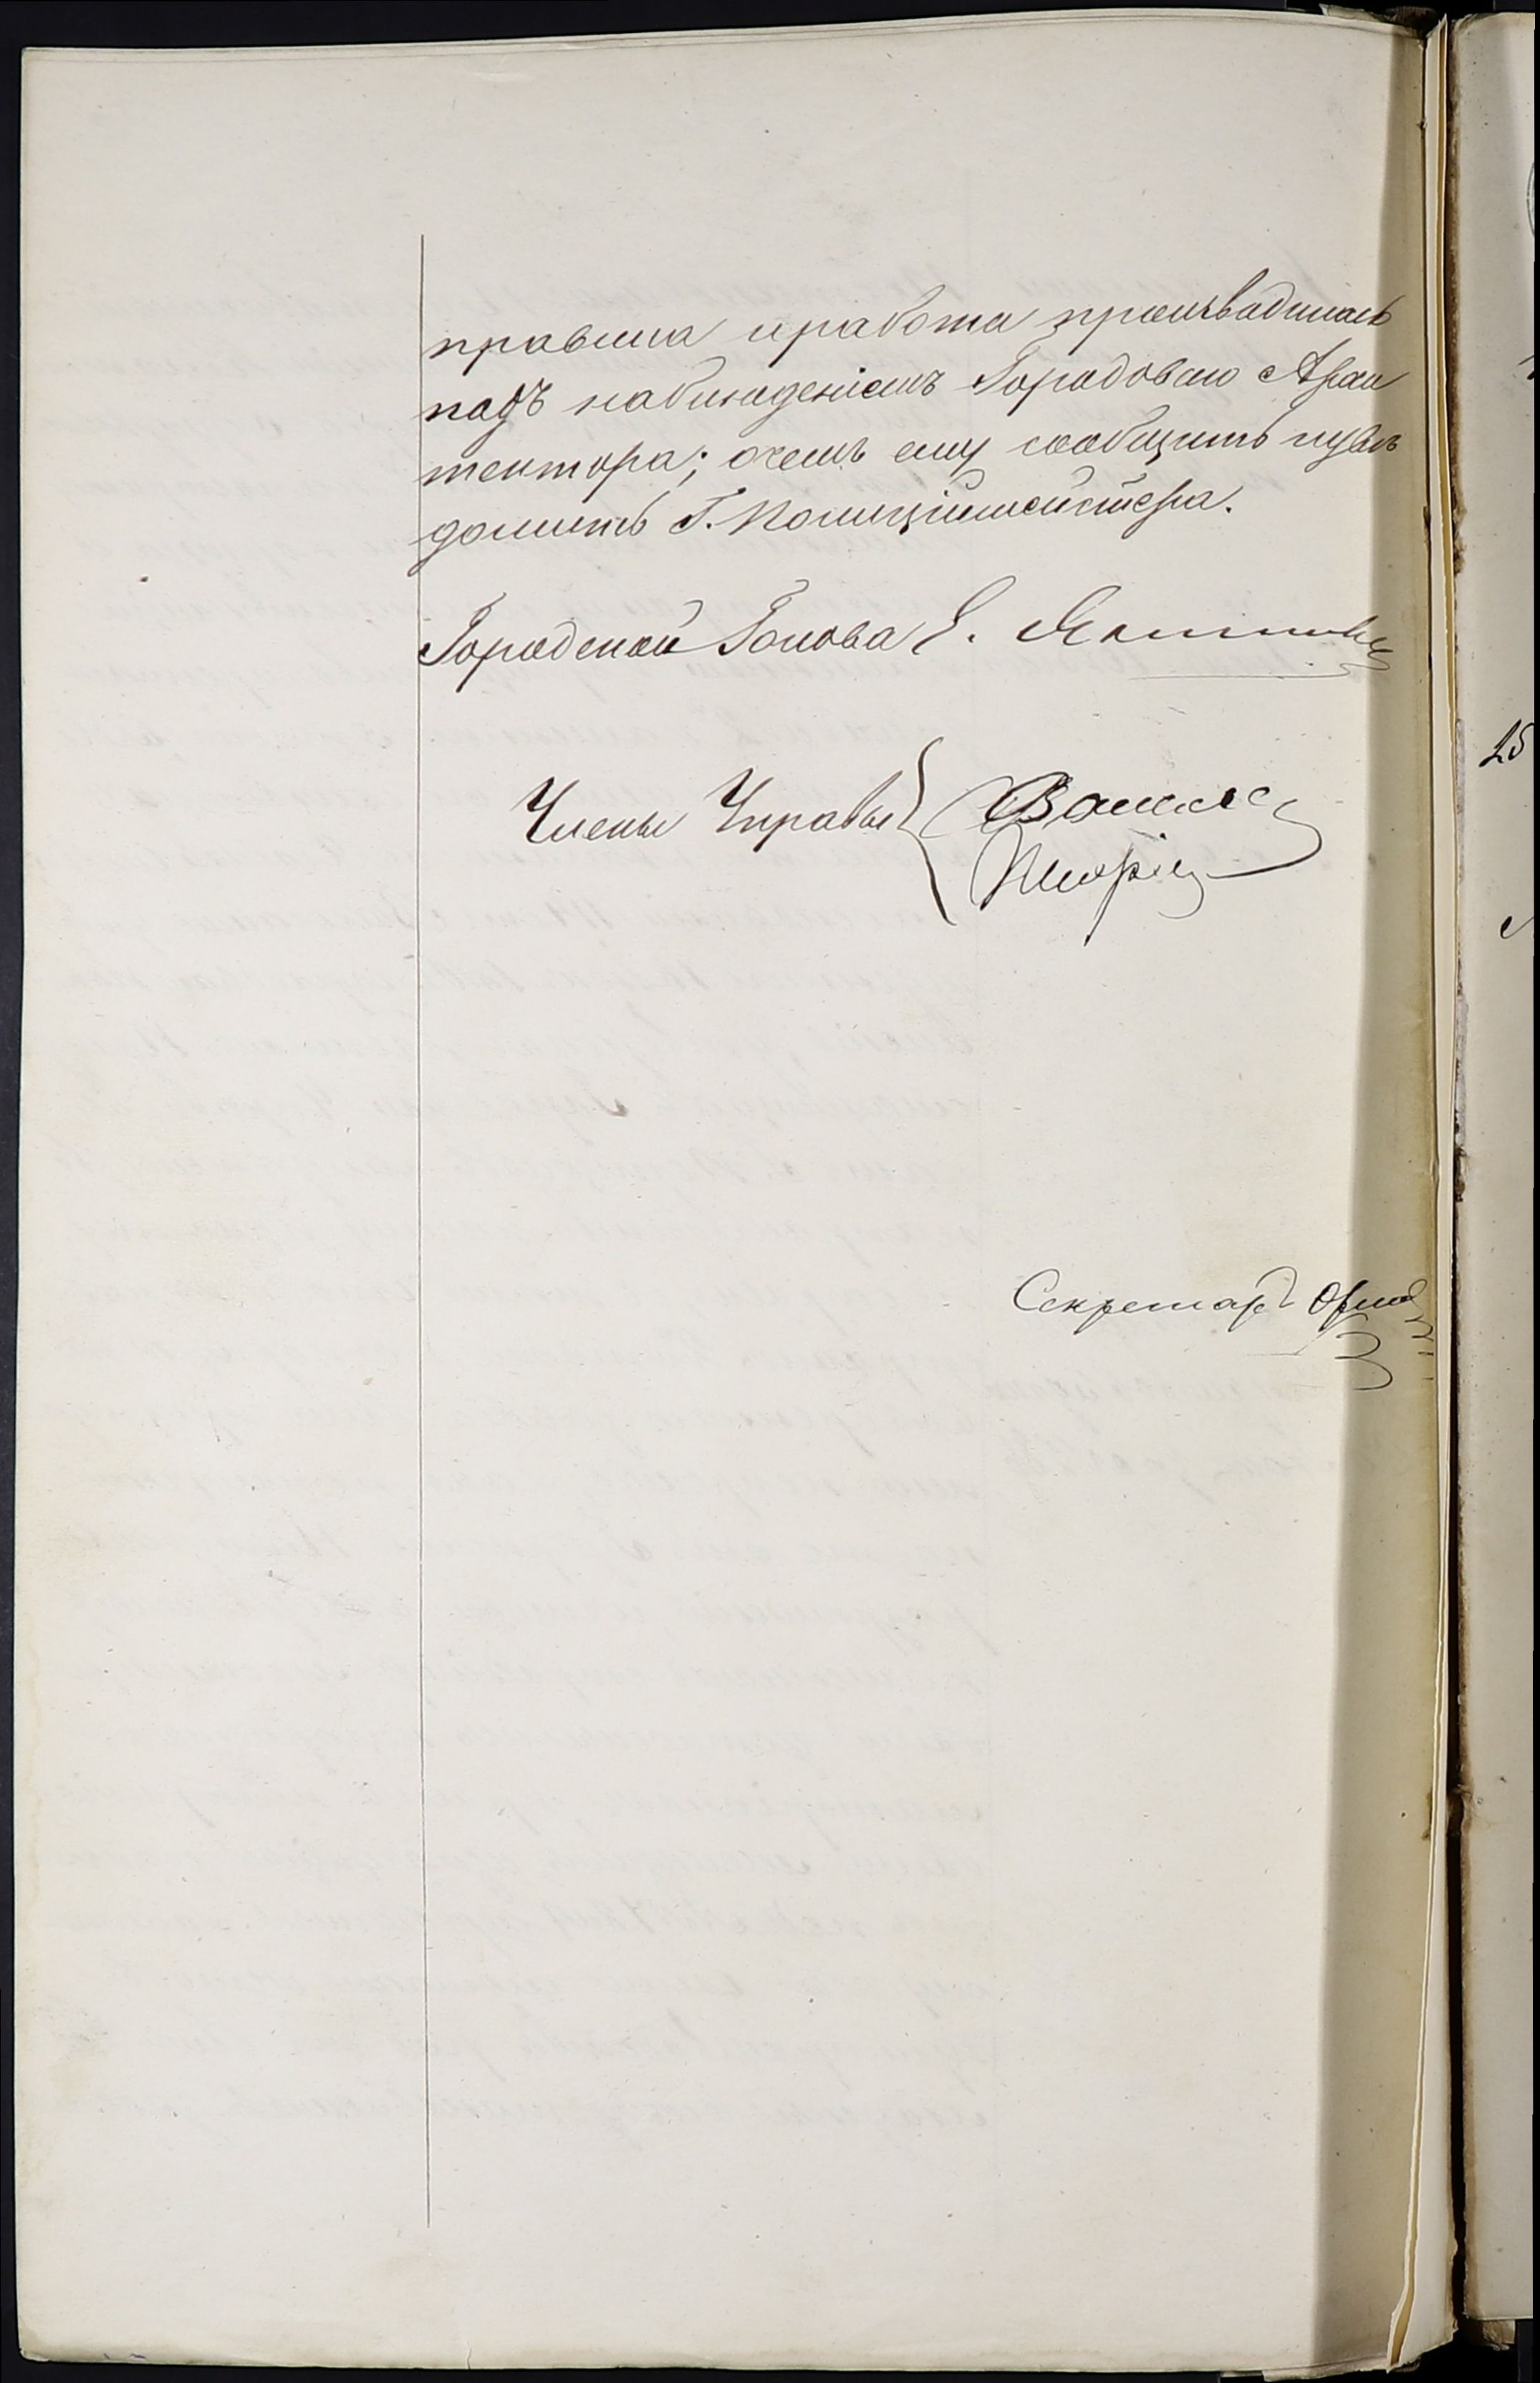 правила и работа производилась
подъ наблюденіемъ Городоваго Архи
тектора; о чемъ ему сообщить и увѣ
домить Г. Полиціймейстера.
Городской Голова Е.
Члены Управы
Секретарь
25